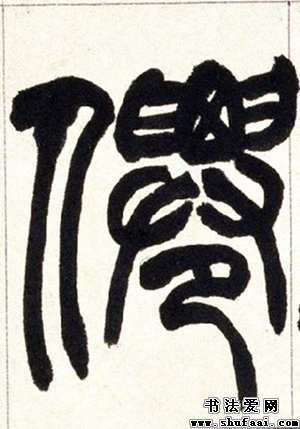 僊
书法爱网
www.shufaai.com